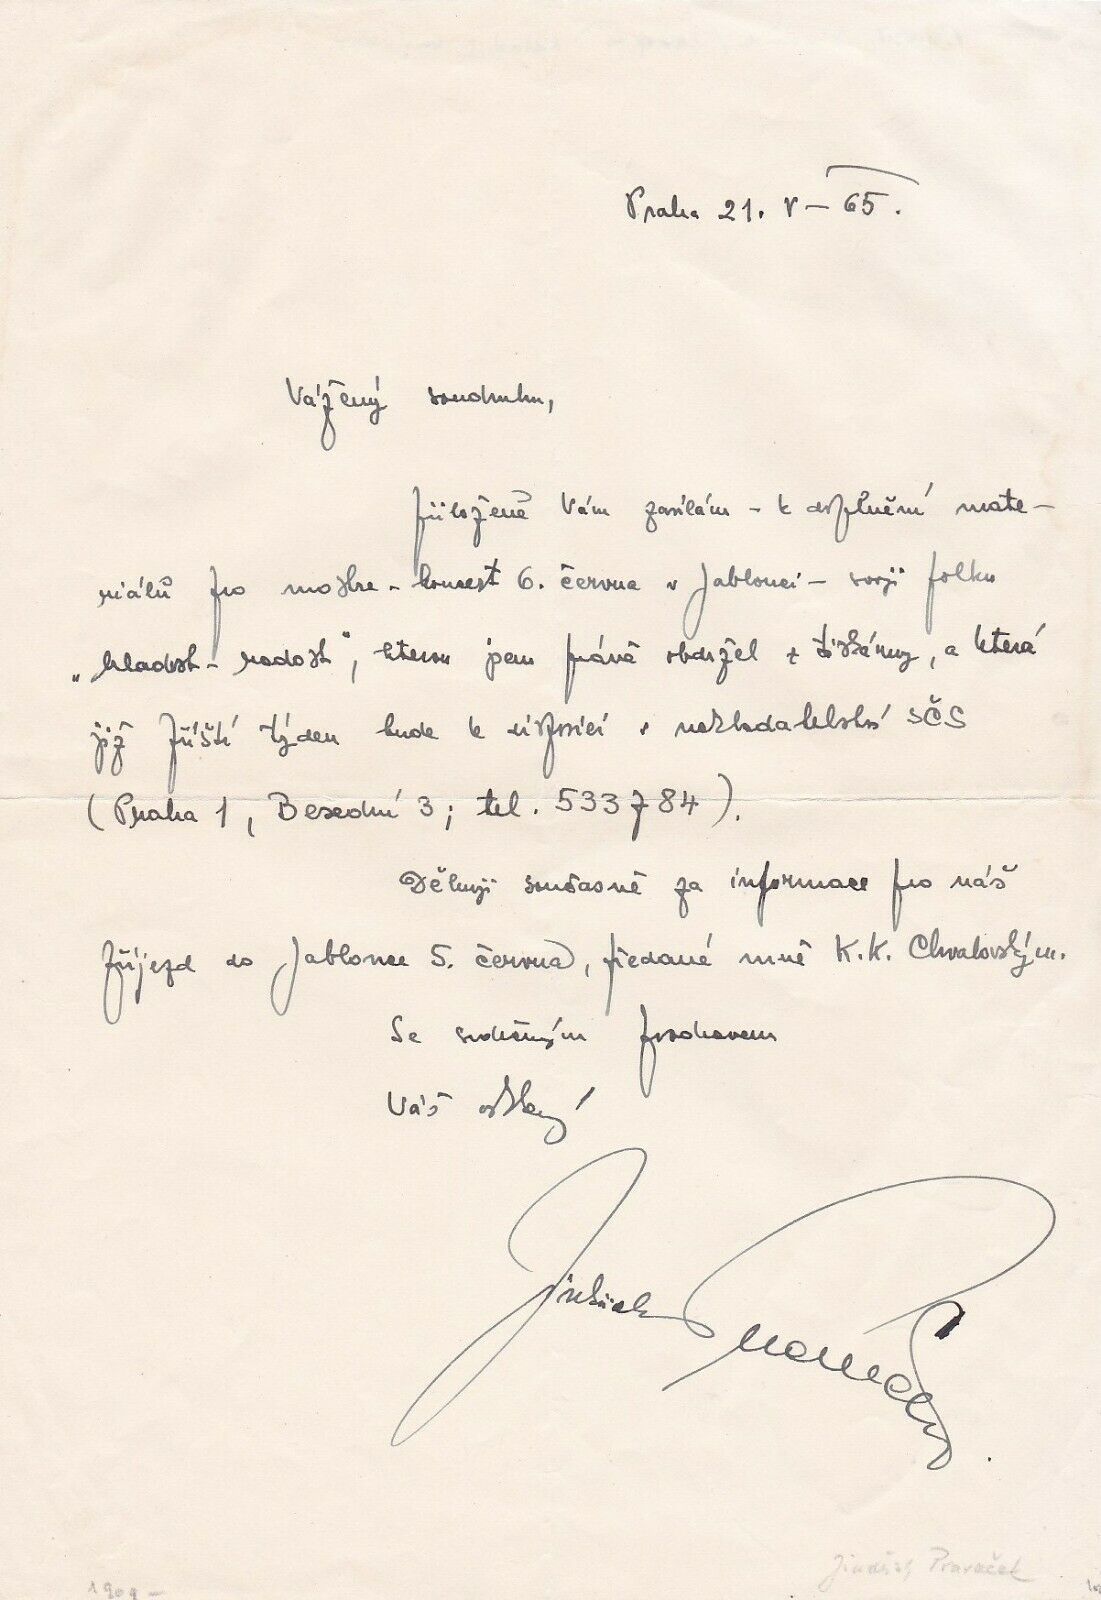 Praha 21. V – 65.
Vážený soudruhu,
přiloženě Vám zasílám – k doplnění mate-
riálů pro
koncert 6. června v Jablonci – svoji polku
„Mladost – radost", kterou jsem právě obdržel z tiskárny, a která
již příští týden bude k disposici v nakladatelství SČS
(Praha 1, Besední 3; tel. 533784).
Děkuji současně za informace pro náš
příjezd do Jablonce 5. června, předané mně K.K. Chvalovským.
Se srdečným pozdravem
Váš oddaný
Jindřich Pravaček
1909 –